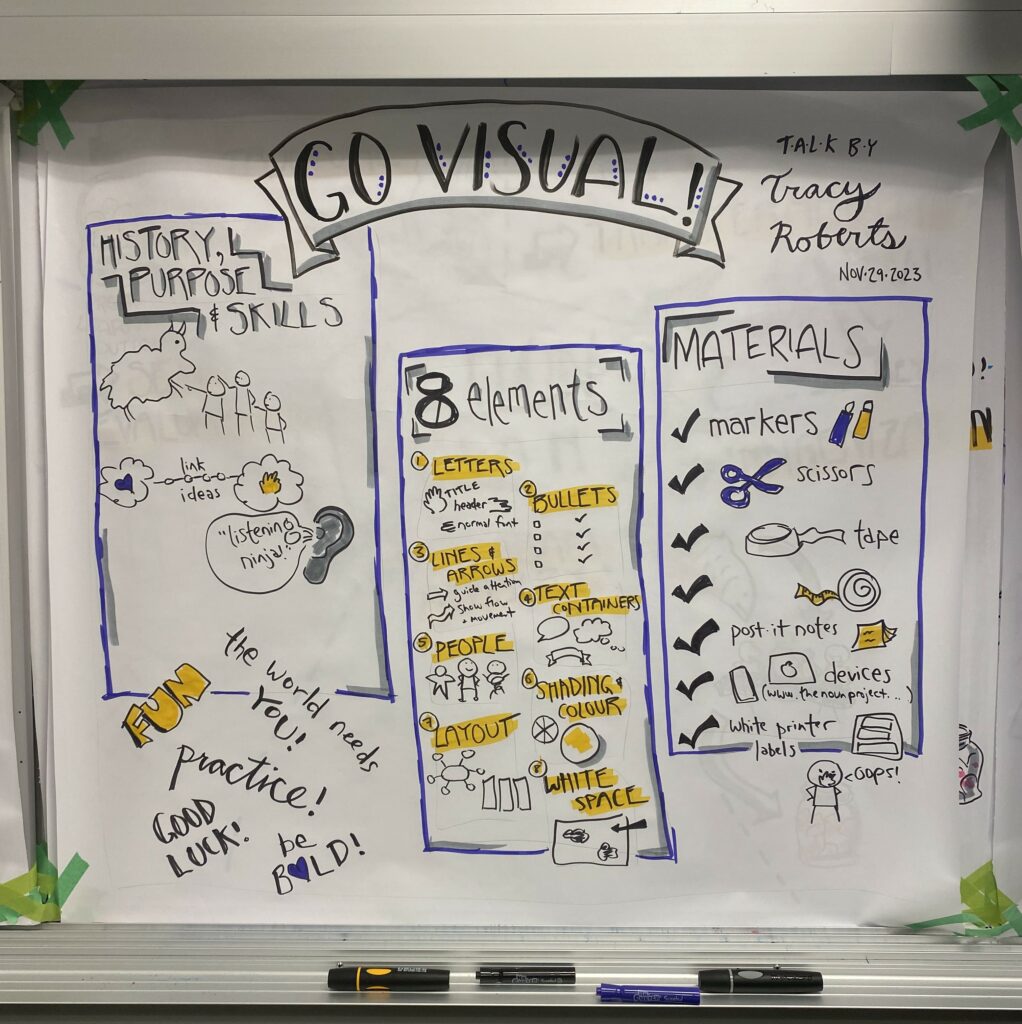 GO VISUAL!
T·A·L·K B·Y
Tracy
Roberts
NOV·29·2023
HISTORY,
PURPOSE
& SKILLS
link
ideas
"listening
ninja!"
FUN
the world needs
YOU!
practice!
GOOD
LUCK!
be
BOLD!
8 elements
1 LETTERS
TITLE
header
normal font
2 BULLETS
3 LINES &
ARROWS
guide attention
show flow
+ movement
4 TEXT
CONTAINERS
5 PEOPLE
6 SHADING &
COLOUR
7 LAYOUT
8 WHITE
SPACE
MATERIALS
markers
scissors
tape
post·it notes
devices
(www.thenounproject...)
white printer
labels
OOPS!